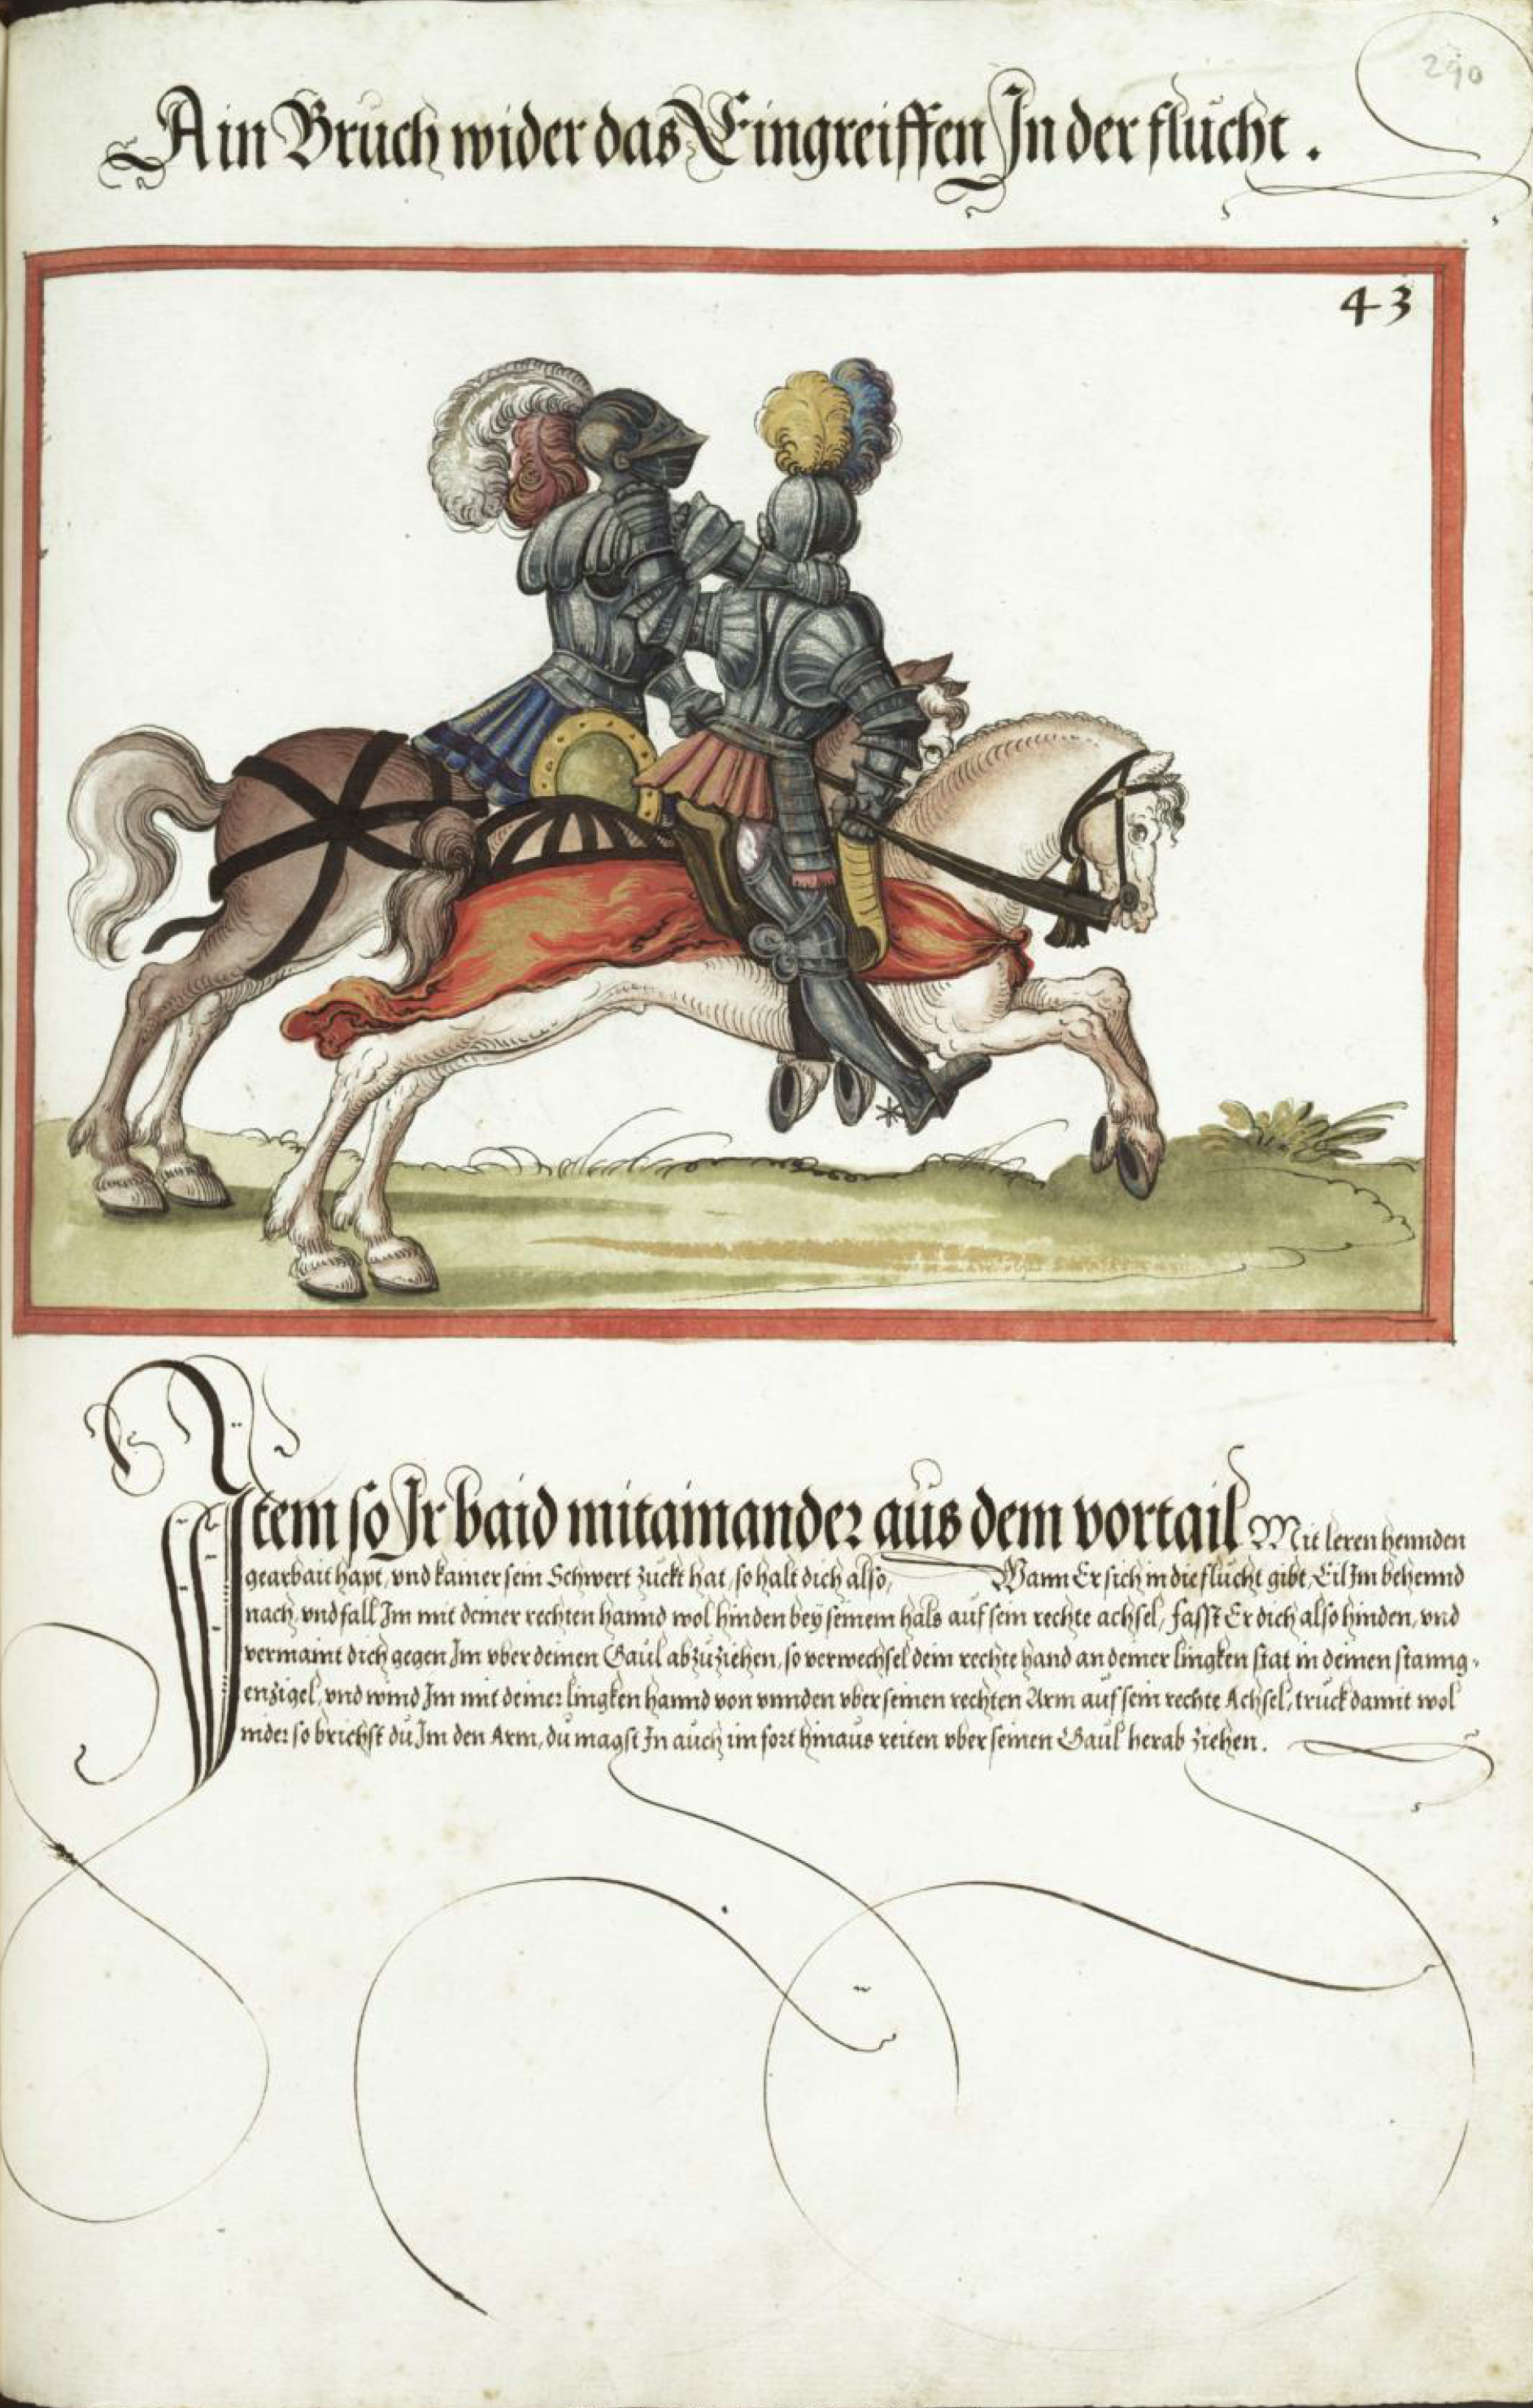 290
Ain Bruch wider das Eingreiffen In der flucht .
43
Item so Ir baid mitainander aus dem vortail Mit leren hennden
gearbait hapt, vnd kainer sein Schwert zuckt hat, so halt dich also, Wann Er sich in die flucht gibt, Eil Im behennd
nach, vnd fall Im mit deiner rechten hannd wol hinden bey seinem hals auf sein rechte achsel, fasst Er dich also hinden, vnd
vermaint dich gegen Im vber deinen Gaul abzuziehen, so verwechsel dein rechte hand an deiner lingken stat in deinen stanng-
enzigel, vnd wind Im mit deiner lingken hannd von vnnden vber seinen rechten Arm auf sein rechte Achsel, truck damit wol
nider so brichst du Im den Arm, du magst In auch im fort hinaus reiten vber seinen Gaul herab ziehen.